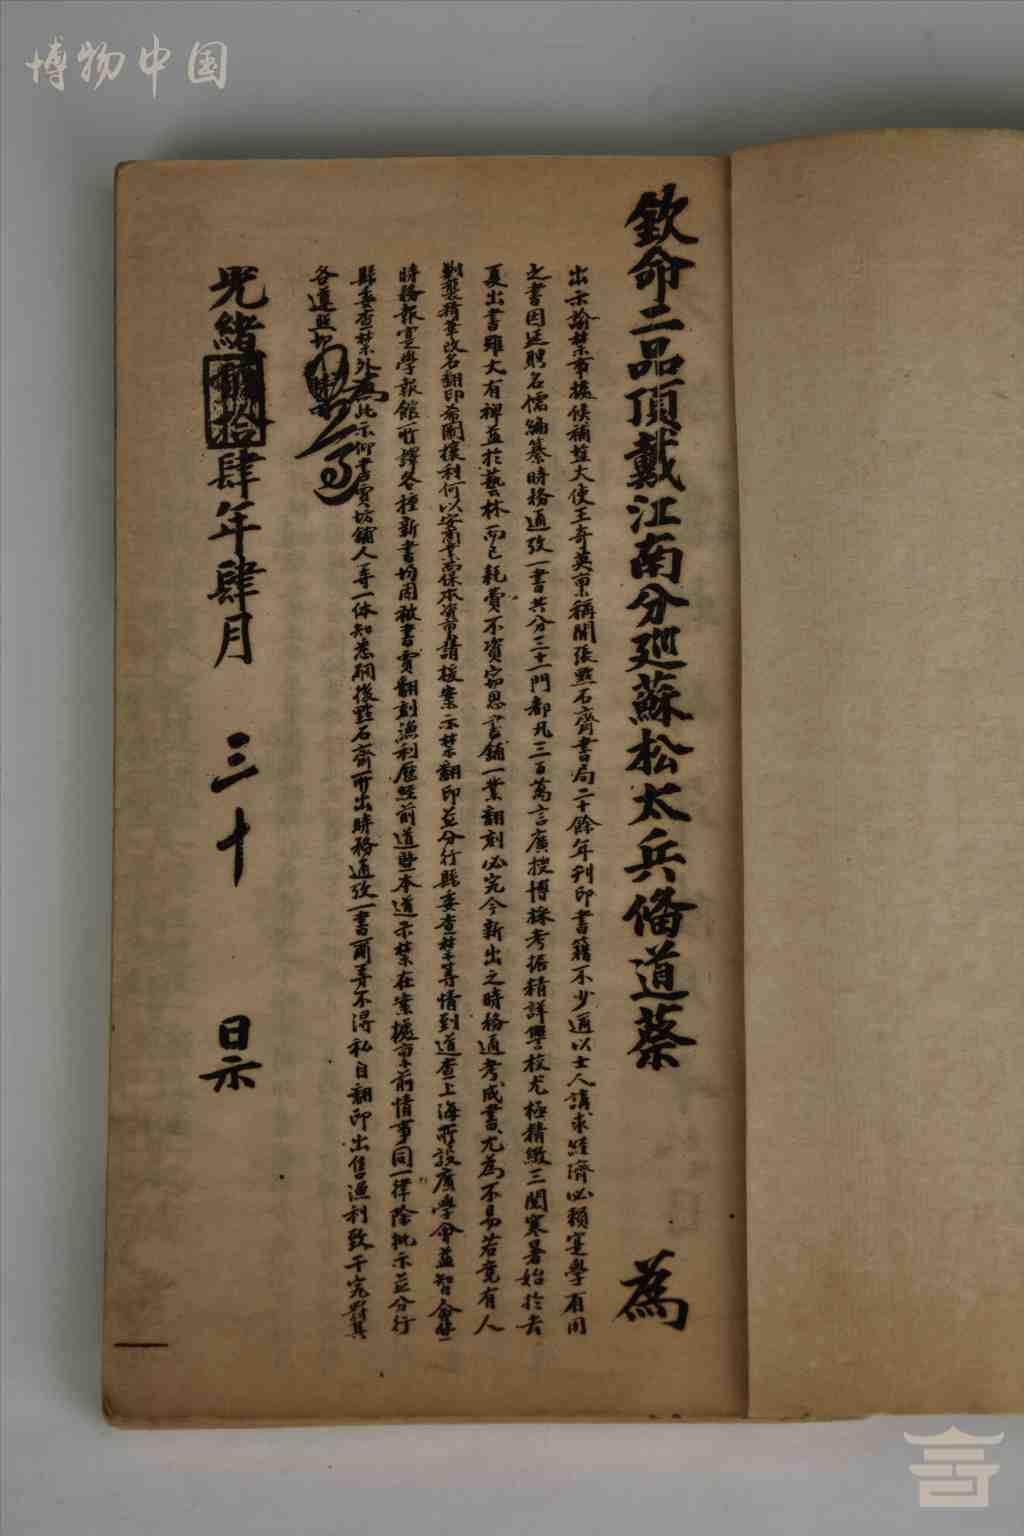 博物中国
欽命二品頂戴江南分巡蘇松太兵備道蔡 為
出示諭禁事據候補鹽大使王奇英稟稱開張點石齋書局二十餘年刊印書籍不少邇以士人講求經濟必賴寔學有用
之書因延聘名儒編纂時務通攷一書共分三十一門都凡三百萬言廣搜博採考据精詳讐校尤極精緻三閱寒暑始於去
夏出書雖大有裨益於藝林而已耗費不資窃思書鋪一業翻刻必究今新出之時務通考成書尤為不易若竟有人
剿襲精華改名翻印希圖攘利何以安商業而保本資市請援案示禁翻印並分行縣委查禁等情到道查上海所設廣學會益智會
時務報寔學報館所譯各種新書均因被書賈翻刻漁利歷經前道暨本道示禁在案據稟前情事同一律除批示並分行
縣委查禁外為此示仰書賈坊鋪人等一体知悉嗣後點石齋所出時務通攷一書爾等不得私自翻印出售漁利致干究罰其
各遵照
光緒貳拾肆年肆月 三十 日示